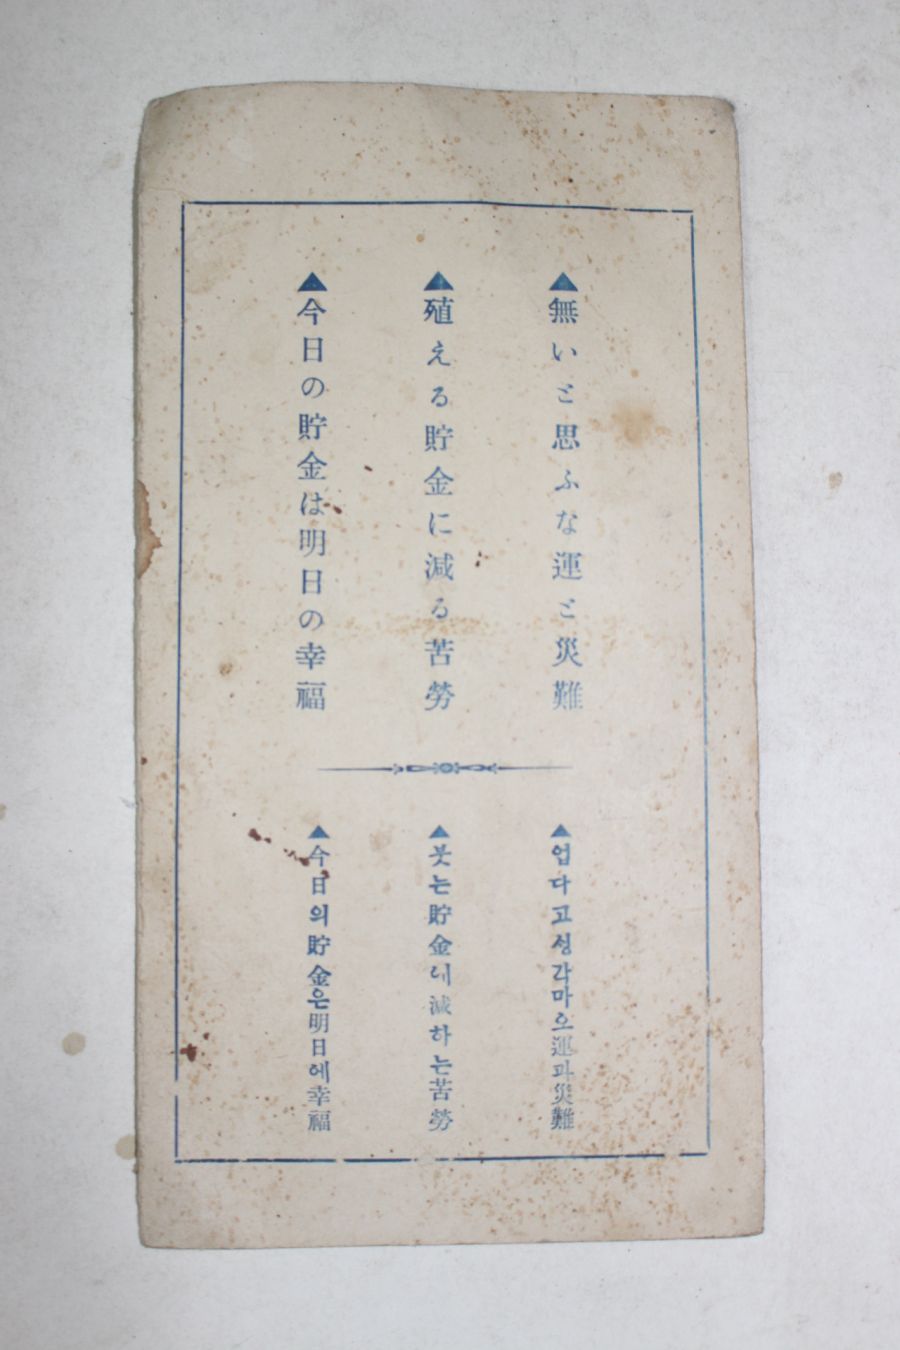 ▲無いと思ふな運と災難
▲殖える貯金に減る苦勞
▲今日の貯金は明日の幸福
▲업다고싱각마오運과災難
▲붓는貯金에減하는苦勞
▲今日의貯金은明日에幸福